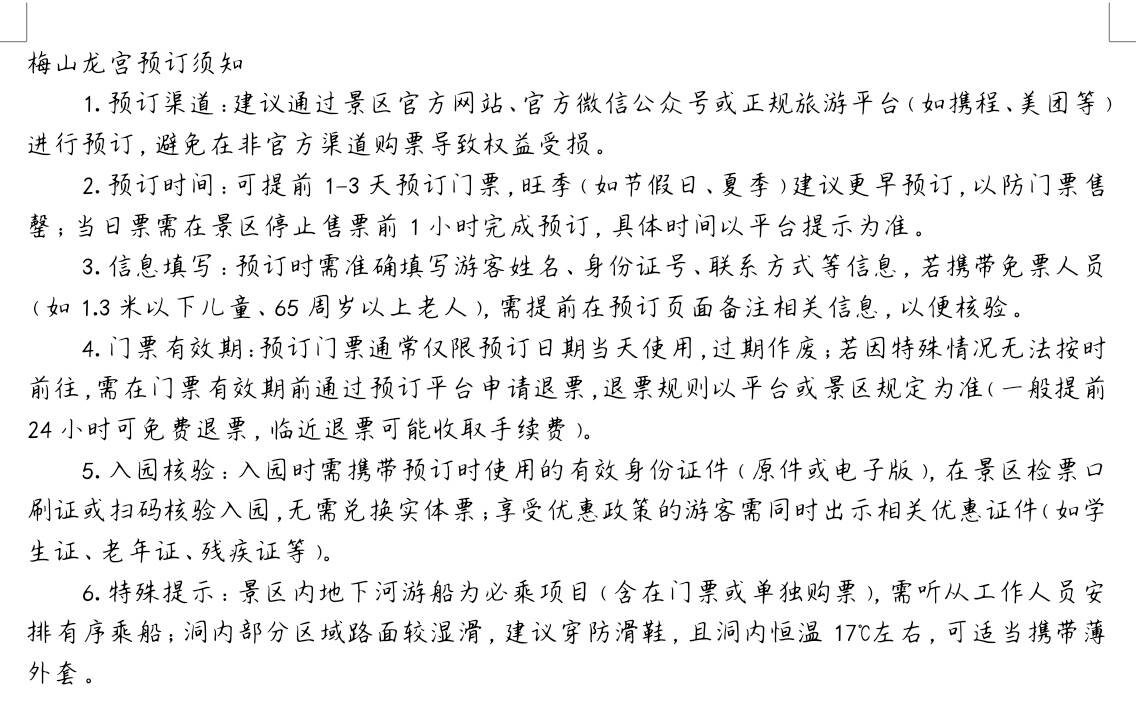 梅山龙宫预订须知
1.预订渠道:建议通过景区官方网站、官方微信公众号或正规旅游平台(如携程、美团等)
进行预订,避免在非官方渠道购票导致权益受损。
2.预订时间:可提前1-3天预订门票,旺季(如节假日、夏季)建议更早预订,以防门票售
罄;当日票需在景区停止售票前1小时完成预订,具体时间以平台提示为准。
3.信息填写:预订时需准确填写游客姓名、身份证号、联系方式等信息,若携带免票人员
(如1.3米以下儿童、65周岁以上老人),需提前在预订页面备注相关信息,以便核验。
4.门票有效期:预订门票通常仅限预订日期当天使用,过期作废;若因特殊情况无法按时
前往,需在门票有效期前通过预订平台申请退票,退票规则以平台或景区规定为准(一般提前
24小时可免费退票,临近退票可能收取手续费)。
5.入园核验:入园时需携带预订时使用的有效身份证件(原件或电子版),在景区检票口
刷证或扫码核验入园,无需兑换实体票;享受优惠政策的游客需同时出示相关优惠证件(如学
生证、老年证、残疾证等)。
6.特殊提示:景区内地下河游船为必乘项目(含在门票或单独购票),需听从工作人员安
排有序乘船;洞内部分区域路面较湿滑,建议穿防滑鞋,且洞内恒温17℃左右,可适当携带薄
外套。